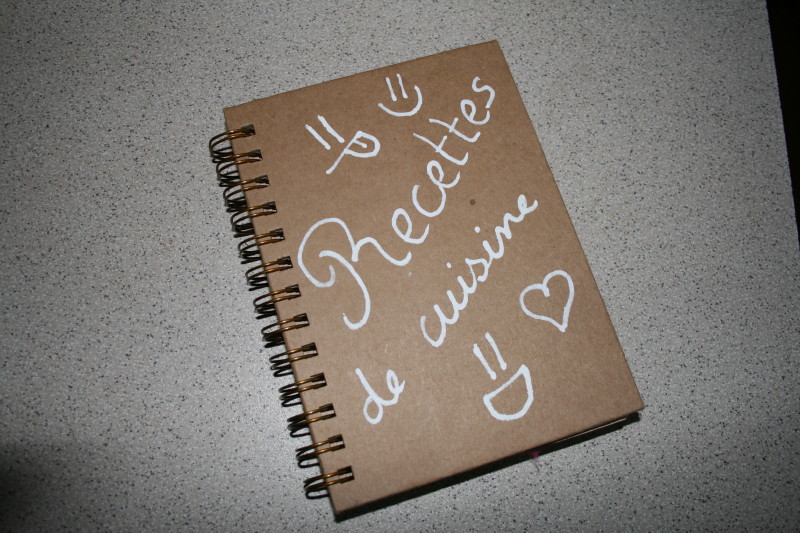 Recettes
de cuisine